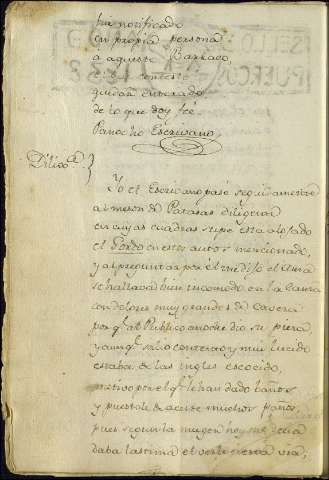 fue notificado
en propia persona
a aqueste Barraco,
contestó
quedar enterado
de lo que doy feé
Panocho Escrivano
Dilig.a }
Yo el Escrivano pasé seguidamente
al meson de Patasas diligencia
en cuyas cuadras supe esta alojado
el Gordo en estos autos mencionado,
y al preguntar por él me dijo el Ama
se hallava bien incomodo en la cama
con dolores muy grandes de cavera
por q.e al Publico anoche dio su piera,
y aunq.e salio contento y muy lucido
estaba de las ingles escocido,
motivo por el q.e le han dado baños
y puestole de aceite muchos paños,
pues segun la muger hoy me decia
daba lastima el verle